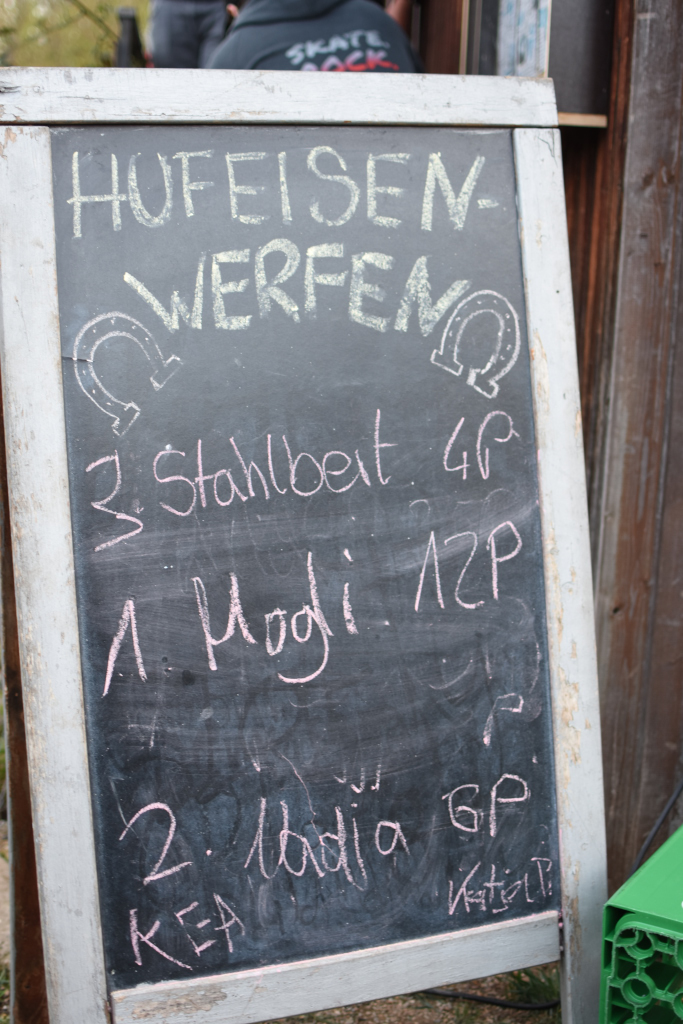 SKATE.
ROCK.
HUFEISEN-
WERFEN
3. Stahlbert. 4P
1 Mogli 12P
P
2. Nadja 6P
KEA